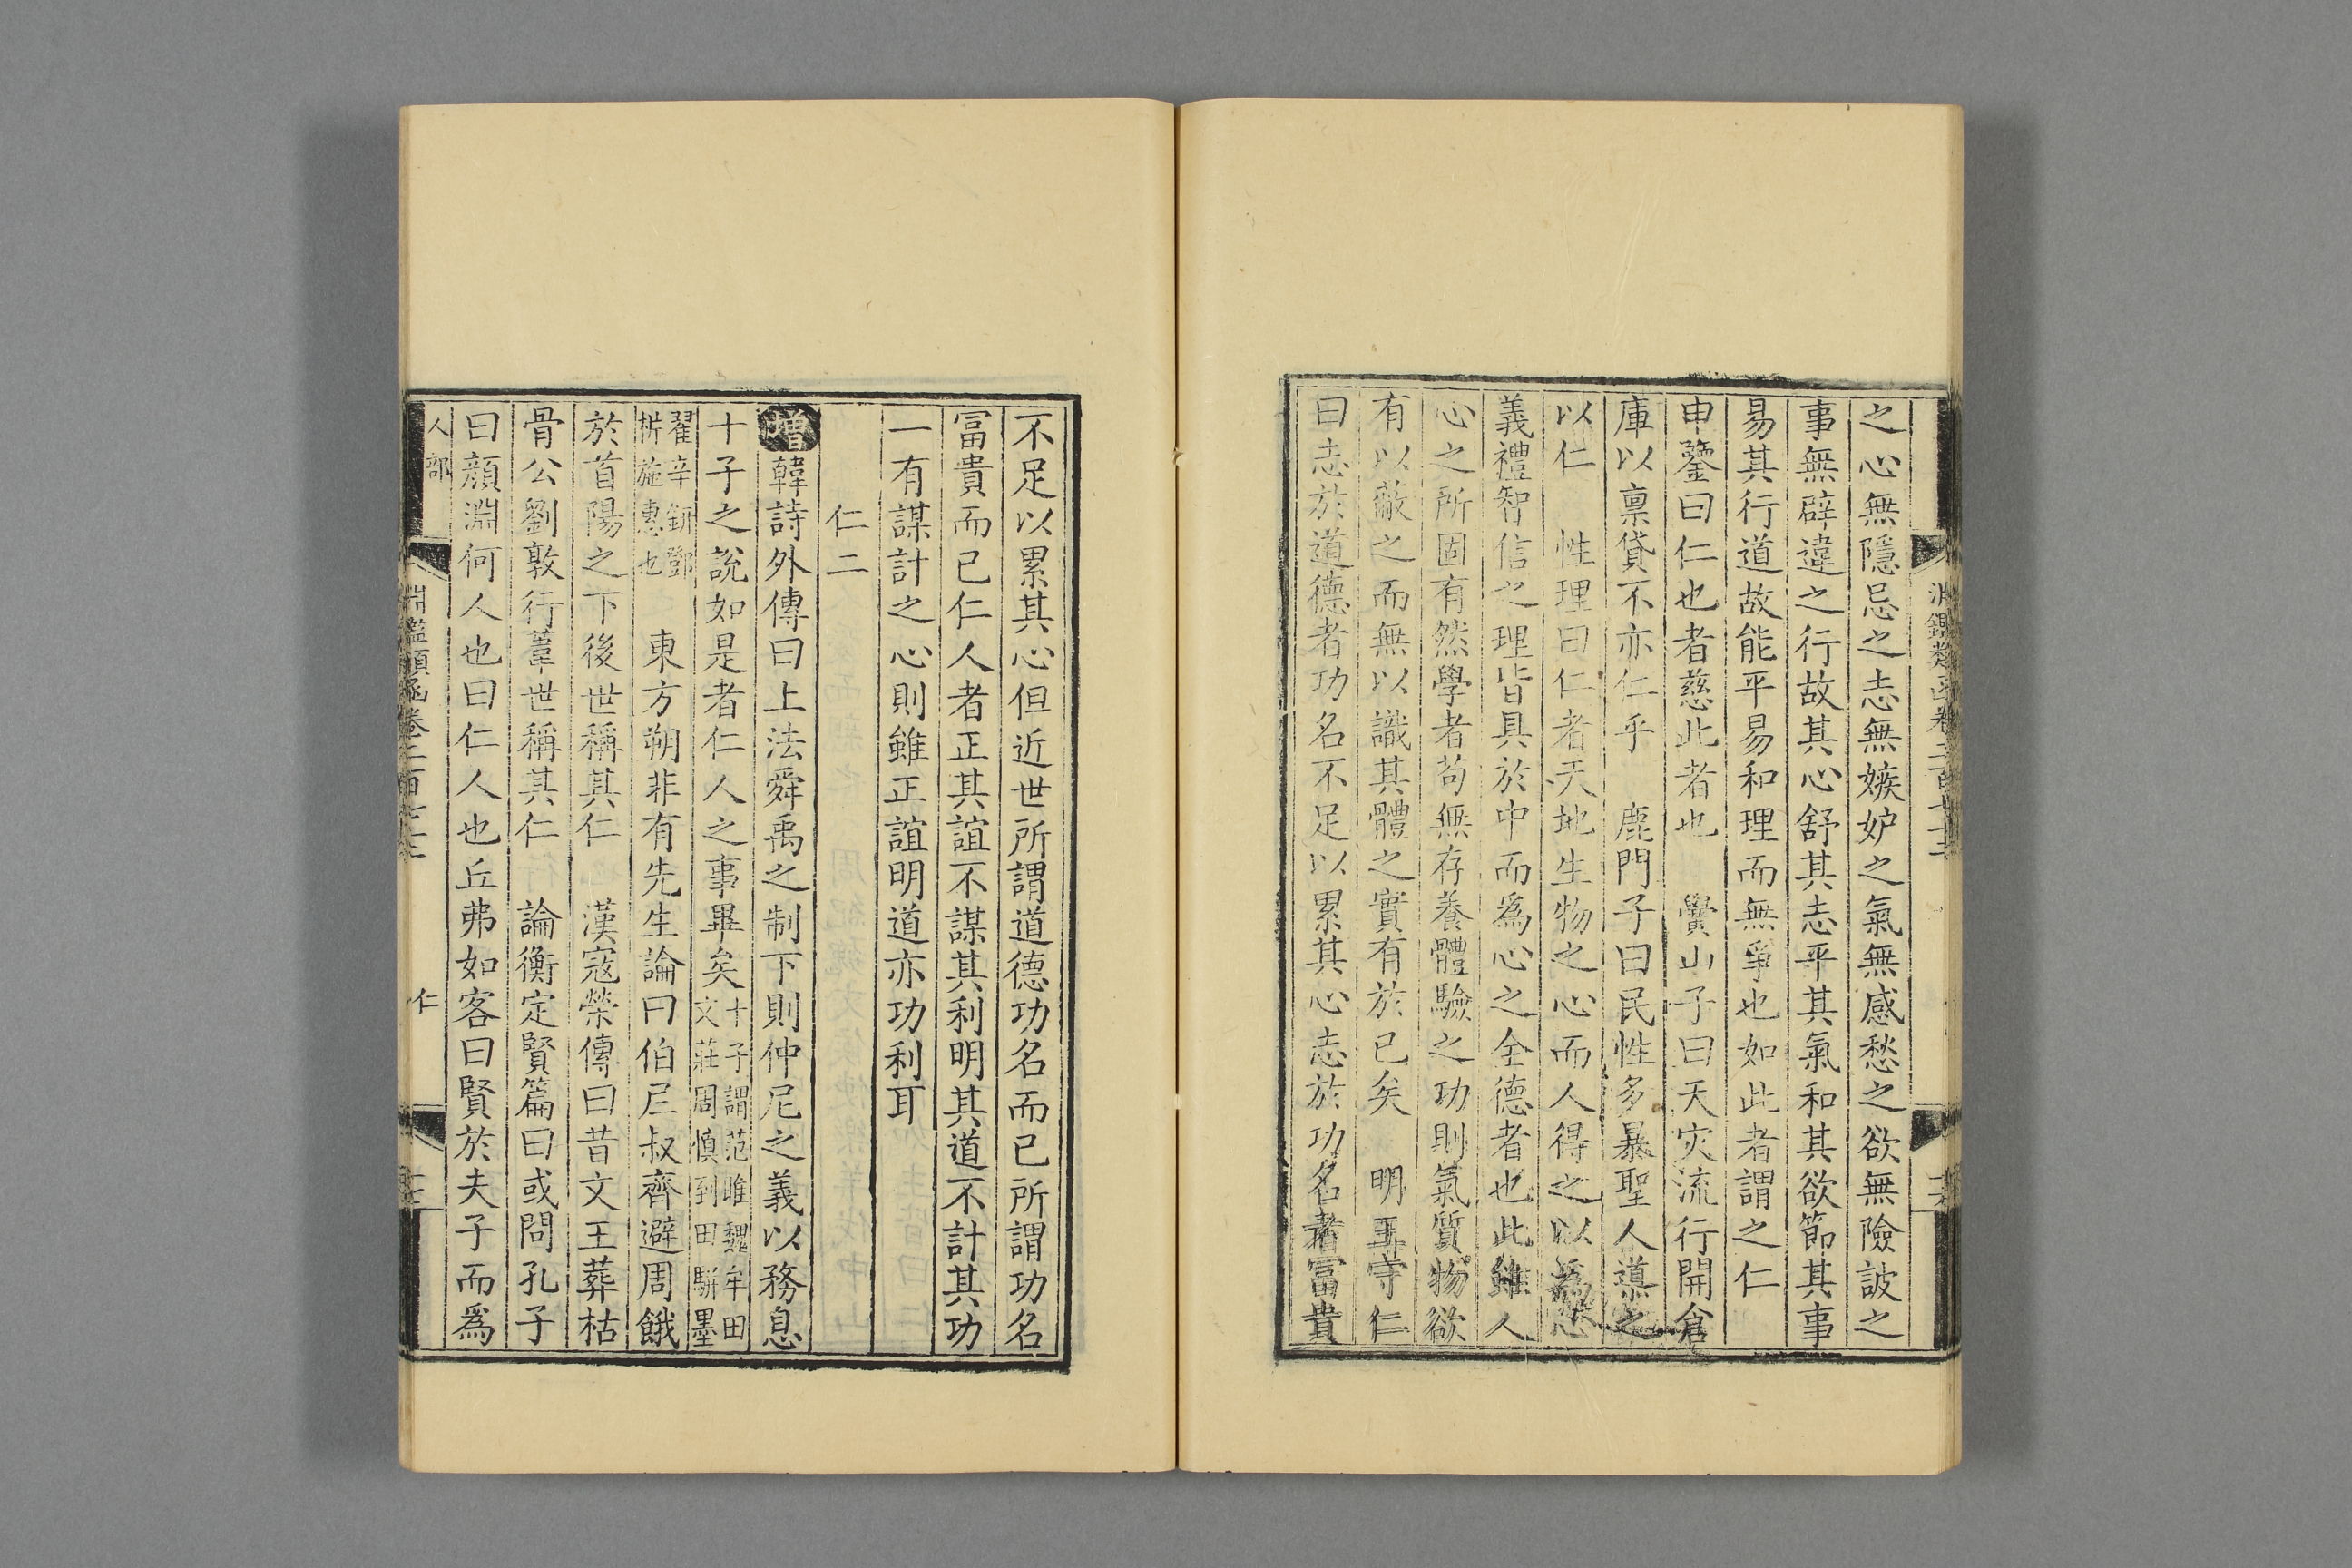 之心無隱忌之志無嫉妒之氣無感愁之欲無險詖之
事無辟違之行故其心舒其志平其氣和其欲節其事
易其行道故能平易和理而無爭也如此者謂之仁
申鑒曰仁也者慈此者也　鸑山子曰天灾流行開倉
庫以禀貸不亦仁乎　鹿門子曰民性多暴聖人導之
以仁　性理曰仁者天地生物之心而人得之以爲心
義禮智信之理皆具於中而爲心之全德者也此雖人
心之所固有然學者苟無存養體驗之功則氣質物欲
有以蔽之而無以識其體之實有於已矣　明 守仁
曰志於道德者功名不足以累其心志於功名者富貴
不足以累其心但近世所謂道德功名而已所謂功名
富貴而已仁人者正其誼不謀其利明其道不計其功
一有謀計之心則雖正誼明道亦功利耳
仁二
增韓詩外傳曰上法舜禹之制下則仲尼之義以務息
十子之說如是者仁人之事畢矣十子謂范雎魏牟田文莊周慎到田駢墨
翟辛鈃鄧析施惠也　東方朔非有先生論曰伯夷叔齊避周餓
於首陽之下後世稱其仁　漢寇榮傳曰昔文王葬枯
骨公劉敦行葦世稱其仁　論衡定賢篇曰或問孔子
曰顏淵何人也曰仁人也丘弗如客曰賢於夫子而爲
人部　淵鑑類函卷二百七十三　仁